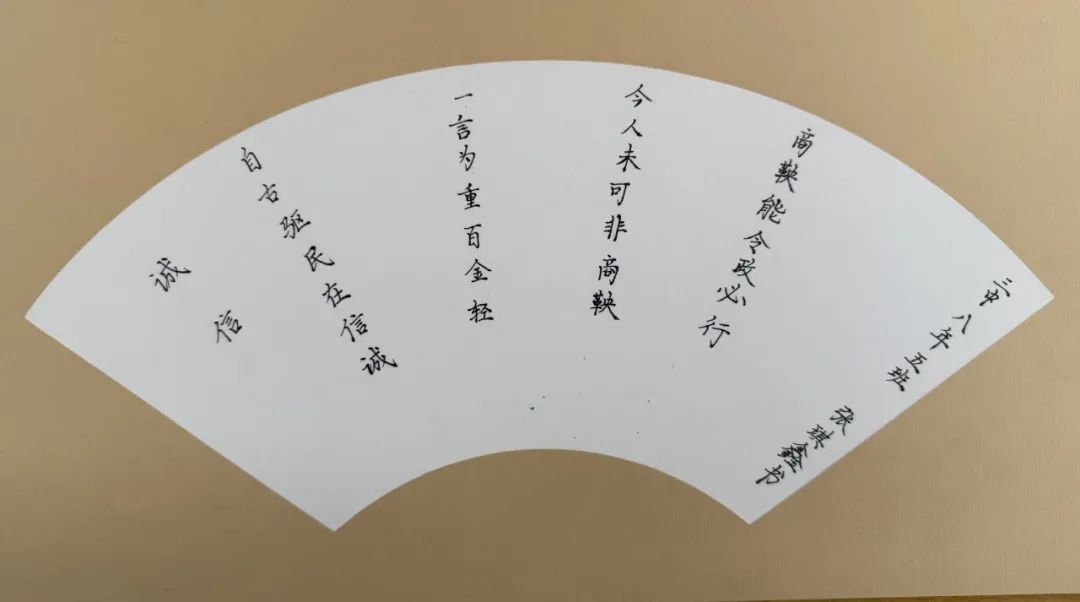 诚信
自古驱民在信诚
一言为重百金轻
今人未可非商鞅
商鞅能令政必行
三中八年五班 张琪鑫书